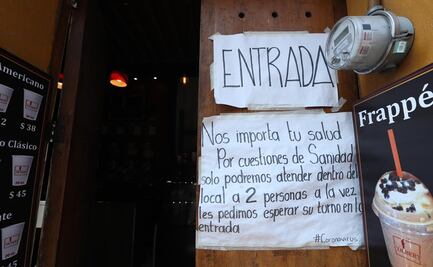 Americano
2
$ 38
o Clásico
$ 45
$ 45
ENTRADA
Nos importa tu salud
Por cuestiones de Sanidad
solo podremos atender dentro del
local a 2 personas a la vez
les pedimos esperar su turno en la
entrada
#Coronavirus
Frappé